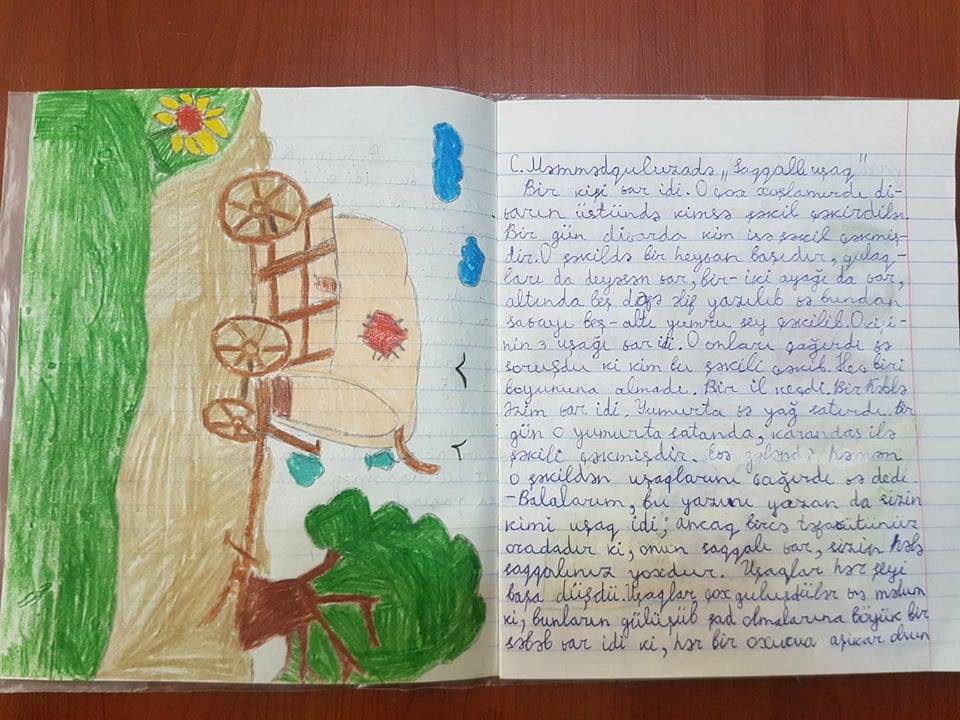 C. Məmmədquluzadə „Saqqallı uşaq"
Bir kişi var idi. O çox xoşlamırdı di-
varın üstündə kimsə şəkil çəkirdilər.
Bir gün divarda kim isə şəkil çəkmiş-
dir. O şəkildə bir heyvan başıdır, qulaq-
ları da deyəsən var, bir-iki ayağı da var,
altında beş dəfə əlif yazılıb və bundan
savayı beş-altı yumru şey çəkilib. O kişi-
nin 3 uşağı var idi. O onları çağırdı və
soruşdu ki kim bu şəkili çəkib. Heç biri
boyununa almadı. Bir il keçdi. Bir Kəblə
Əzim var idi. Yumurta və yağ satırdı. Bir
gün o yumurta satanda, karandaş ilə
şəkili çəkmişdir. Evə gələndə həmən
o şəkildən uşaqlarını çağırdı və dedi.
-Balalarım, bu yazını yazan da sizin
kimi uşaq idi; ancaq bircə təfavütünüz
oradadır ki, onun saqqalı var, sizin hələ
saqqalınız yoxdur. Uşaqlar hər şeyi
başa düşdü. Uşaqlar çox gülüşdülər və məlum
ki, bunların gülüşüb şad olmalarına böyük bir
səbəb var idi ki, hər bir oxucua aşikar olsun